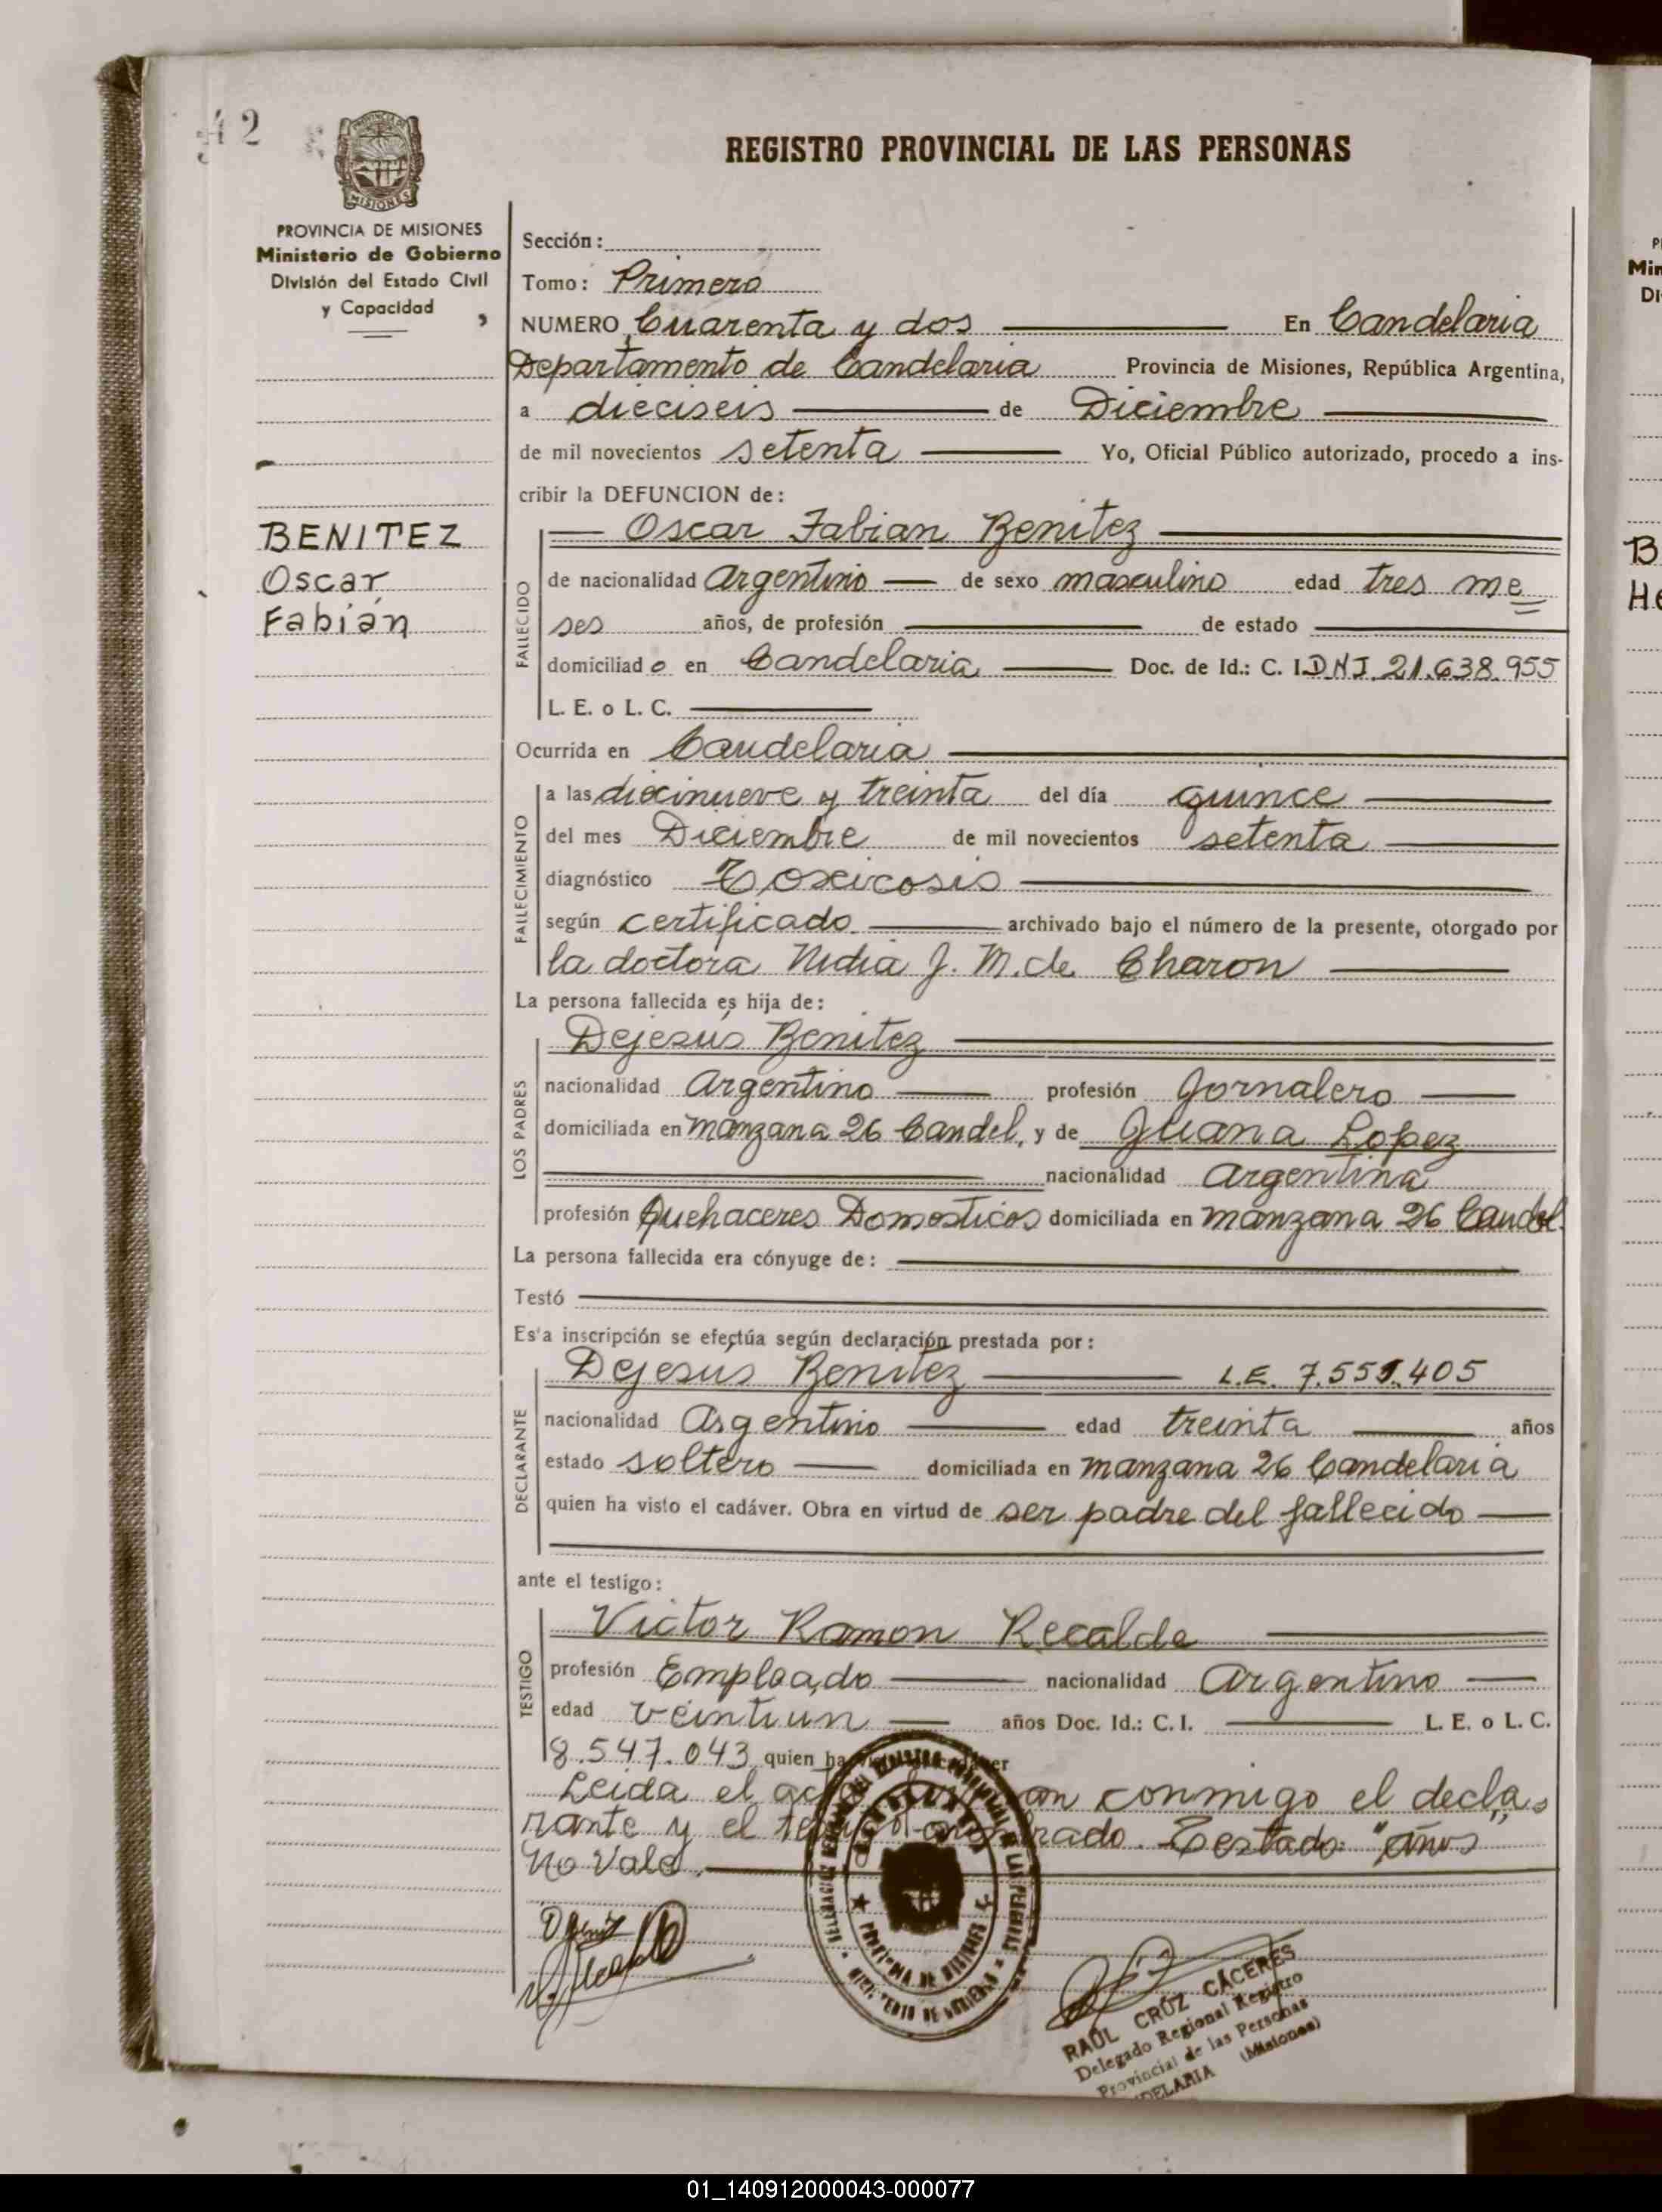 42
REGISTRO PROVINCIAL DE LAS PERSONAS
MISIONES
PROVINCIA DE MISIONES
Ministerio de Gobierno
División del Estado Civil
y Capacidad
BENITEZ
Oscar
Fabián
Sección:
Tomo: Primero
NUMERO Cuarenta y dos En Candelaria
Departamento de Candelaria Provincia de Misiones, República Argentina,
a dieciseis de Diciembre
de mil novecientos setenta Yo, Oficial Público autorizado, procedo a ins-
cribir la DEFUNCION de:
Oscar Fabian Benitez
FALLECIDO
de nacionalidad Argentino de sexo masculino edad tres me
ses años, de profesión de estado
domiciliado en Candelaria Doc. de Id.: C. I. DNI 21.638.955
L. E. o L. C.
Ocurrida en Candelaria
FALLECIMIENTO
a las diecinueve y treinta del día quince
del mes Diciembre de mil novecientos setenta
diagnóstico Toxicosis
según certificado archivado bajo el número de la presente, otorgado por
la doctora Nidia J. M. de Charon
La persona fallecida es hija de:
LOS PADRES
Dejesús Benitez
nacionalidad Argentino profesión Jornalero
domiciliada en manzana 26 Candel. y de Juana Lopez
nacionalidad Argentina
profesión Quehaceres Domesticos domiciliada en manzana 26 Candel.
La persona fallecida era cónyuge de:
Testó
Esta inscripción se efectúa según declaración prestada por:
DECLARANTE
Dejesús Benitez L.E. 7.551.405
nacionalidad Argentino edad treinta años
estado soltero domiciliada en manzana 26 Candelaria
quien ha visto el cadáver. Obra en virtud de ser padre del fallecido
ante el testigo:
TESTIGO
Victor Ramon Recalde
profesión Empleado nacionalidad Argentino
edad veintiun años Doc. Id.: C. I. L. E. o L. C.
8.547.043 quien ha
Leida el acta conmigo el decla
rante y el Testado: "años"
No Vale.
RAÚL CRUZ CÁCERES
Delegado Regional Registro
Provincial de las Personas
(Misiones)
PROVINCIA DE MISIONES
B
He
Min
01_140912000043-000077